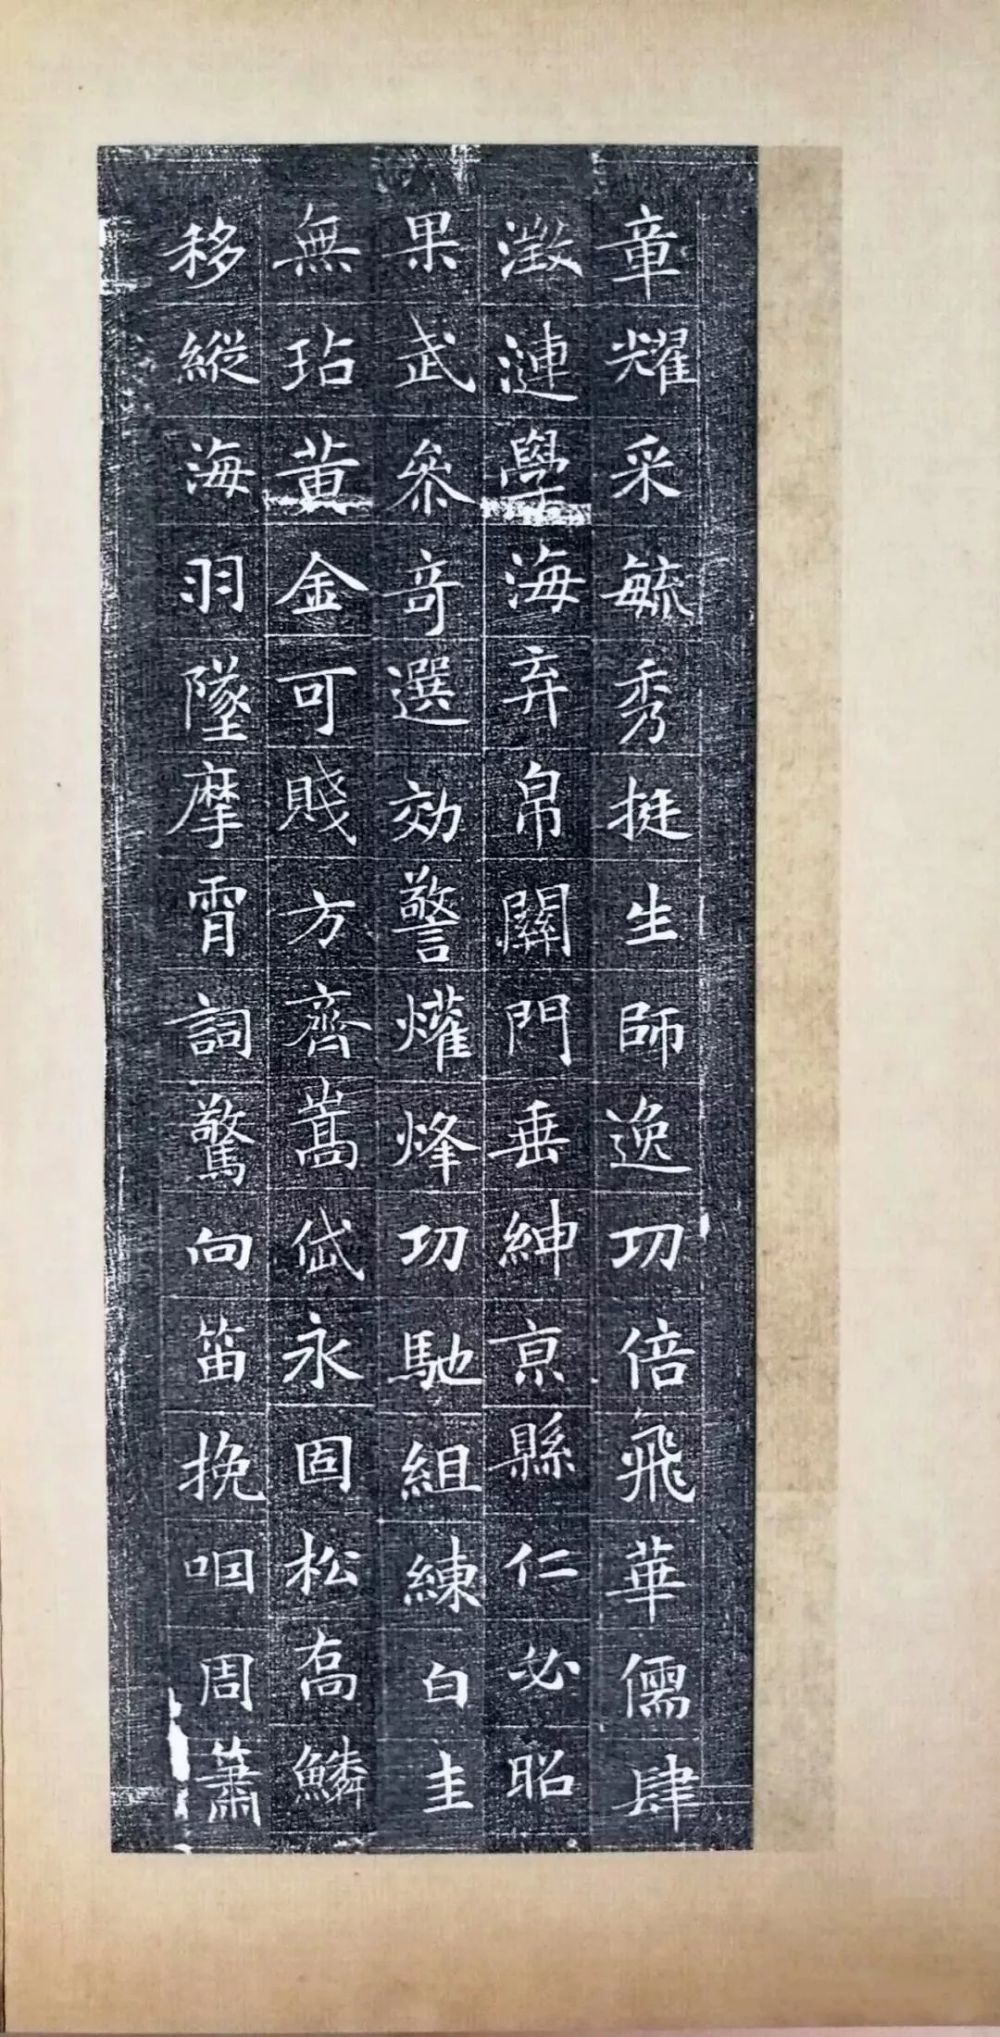 章耀采毓秀挺生師逸功倍飛華儒肆
澂漣學海弃帛關門垂紳京縣仁必昭
果武參奇選効警爟烽功馳組練白圭
無玷黃金可賤方齊嵩岱永固松高鱗
移縱海羽墜摩霄詞驚向笛挽咽周蕭